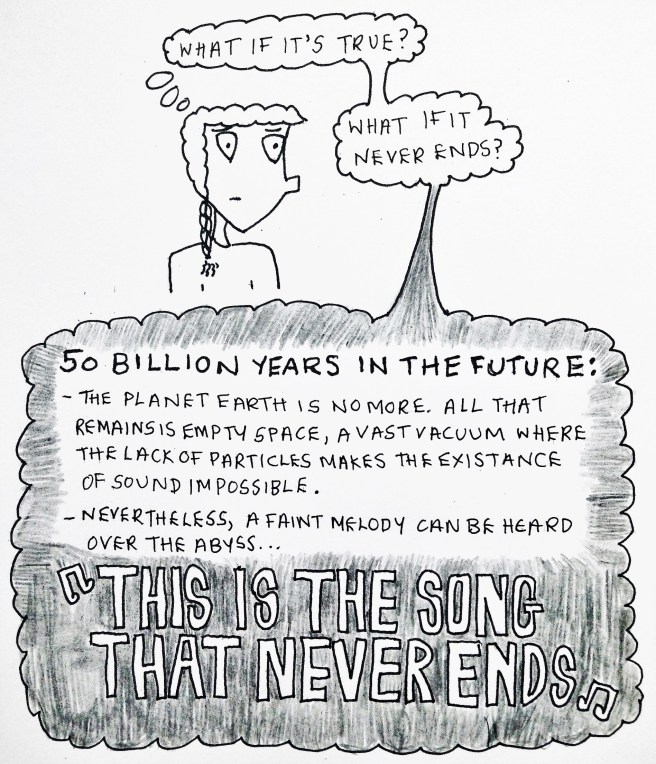 WHAT IF IT'S TRUE?
WHAT IF IT
NEVER ENDS?
50 BILLION YEARS IN THE FUTURE:
- THE PLANET EARTH IS NO MORE. ALL THAT
REMAINS IS EMPTY SPACE, A VAST VACUUM WHERE
THE LACK OF PARTICLES MAKES THE EXISTANCE
OF SOUND IMPOSSIBLE.
- NEVERTHELESS, A FAINT MELODY CAN BE HEARD
OVER THE ABYSS...
♫ THIS IS THE SONG
THAT NEVER ENDS ♫